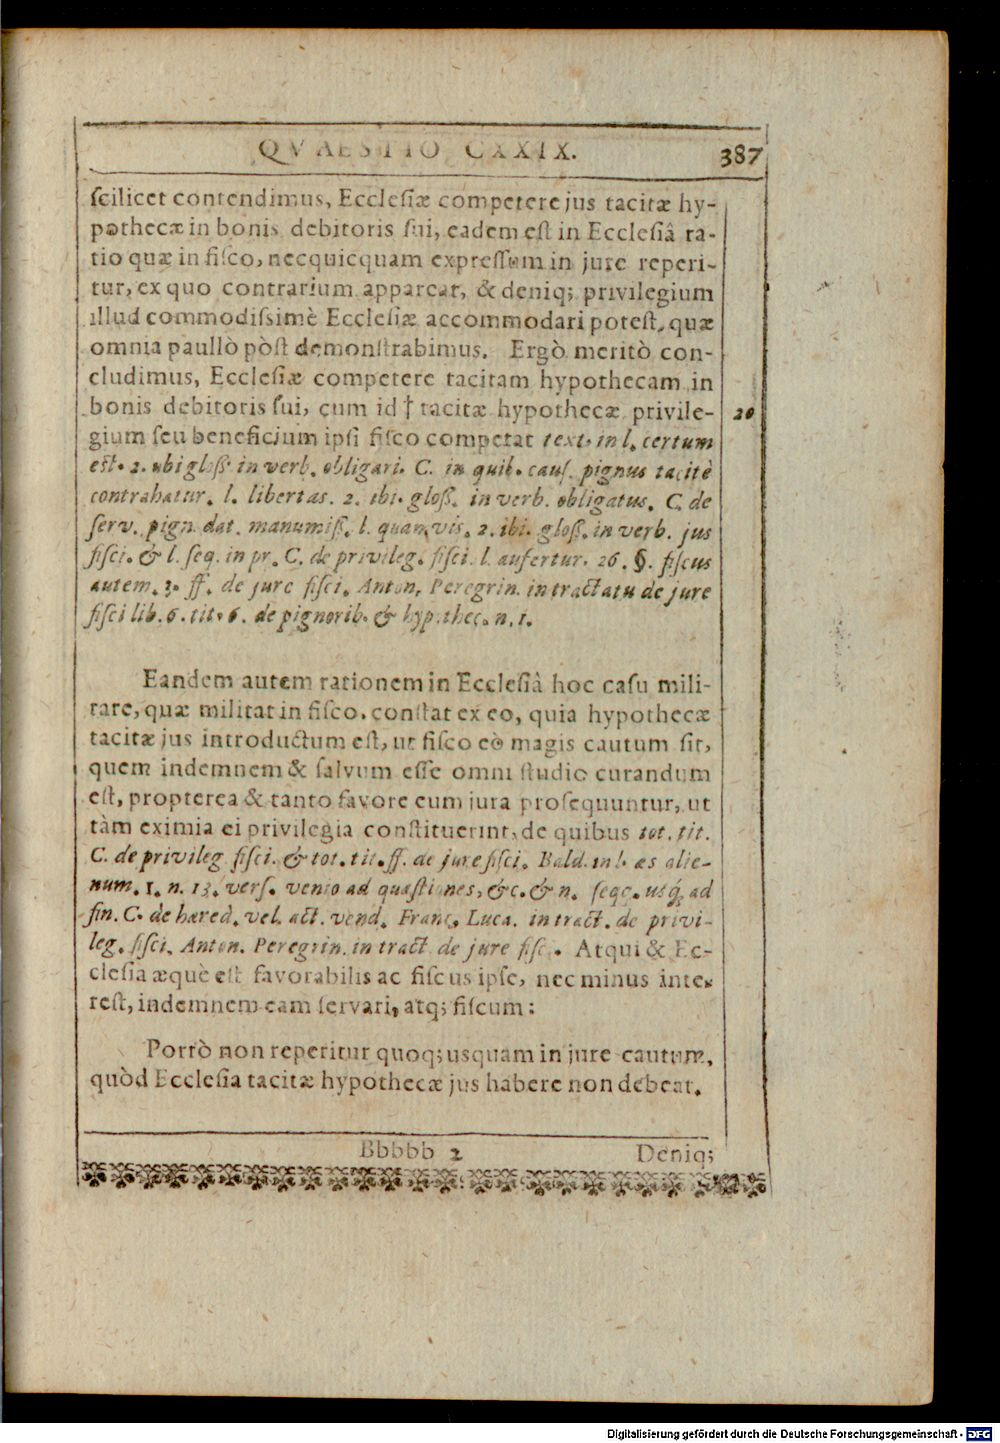 QVAESTIO CXXIX. 387
scilicet contendimus, Ecclesiæ competere jus tacitæ hy-
pothecæ in bonis debitoris sui, eadem est in Ecclesiâ ra-
tio quæ in fisco, necquicquam expressum in jure reperi-
tur, ex quo contrarium appareat, & deniq; privilegium
illud commodissimè Ecclesiæ accommodari potest, quæ
omnia paullò pòst demonstrabimus. Ergò meritò con-
cludimus, Ecclesiæ competere tacitam hypothecam in
bonis debitoris sui, cum id † tacitæ hypothecæ privile- 20
gium seu beneficium ipsi fisco competat text. in l. certum
est. 2. ubi gloss. in verb. obligari. C. in quib. caus. pignus tacitè
contrahatur. l. libertas. 2. ibi. gloss. in verb. obligatus. C. de
serv. pign. dat. manumiss. l. quamvis. 2. ibi. gloss. in verb. jus
fisci. & l. seq. in pr. C. de privileg. fisci. l. aufertur. 26. §. fiscus
autem. 3. ff. de jure fisci. Anton. Peregrin. in tractatu de jure
fisci lib. 6. tit. 6. de pignorib. & hypothec. n. 1.
Eandem autem rationem in Ecclesiâ hoc casu mili-
tare, quæ militat in fisco, constat ex eo, quia hypothecæ
tacitæ jus introductum est, ut fisco eò magis cautum sit,
quem indemnem & salvum esse omni studio curandum
est, propterea & tanto favore eum jura prosequuntur, ut
tàm eximia ei privilegia constituerint, de quibus tot. tit.
C. de privileg. fisci. & tot. tit. ff. de jure fisci. Bald. in l. æs alie-
num. 1. n. 13. vers. venio ad quæstiones, &c. & n. seqq. usq; ad
fin. C. de hæred. vel. act. vend. Franc. Luca. in tract. de privi-
leg. fisci. Anton. Peregrin. in tract de jure fisc. Atqui & Ec-
clesia æquè est favorabilis ac fiscus ipse, nec minus inte-
rest, indemnem eam servari, atq; fiscum:
Porrò non reperitur quoq; usquam in jure cautum,
quòd Ecclesia tacitæ hypothecæ jus habere non debeat.
Bbbbb 2 Deniq;
Digitalisierung gefördert durch die Deutsche Forschungsgemeinschaft - DFG